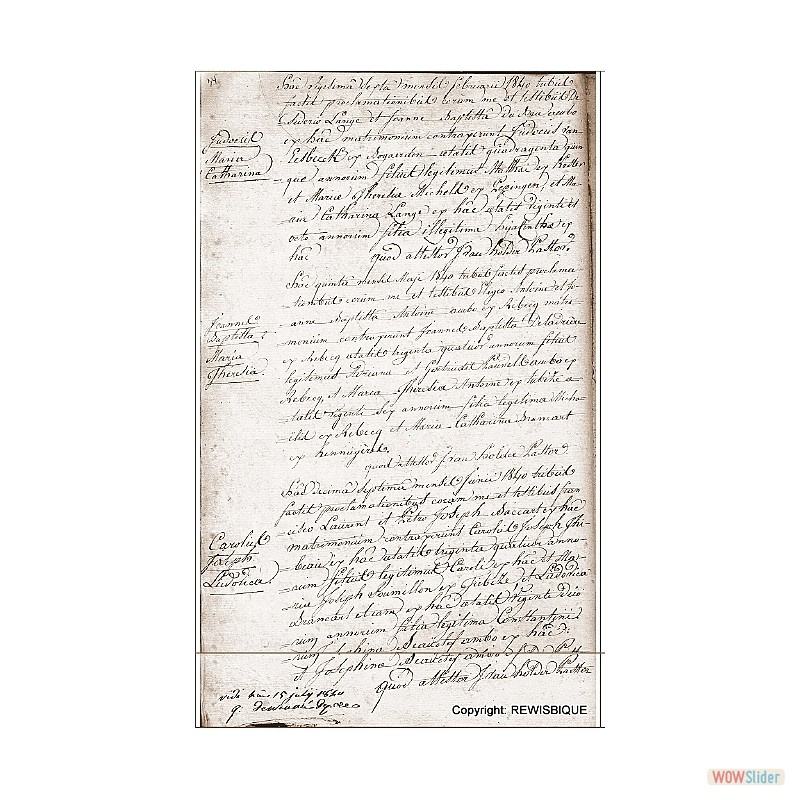 Hac vigesima sexta mensis februarii 1840 tribus
factis proclamationibus coram me et testibus De
siderio Lange et Joanne Baptista Du ambo
ex hac matrimonium contraxerunt Judocus Van
Eesbeeck ex Bogaerden aetatis quadraginta quin
que annorum filius legitimus Matthaei ex
et Maria Theresia Michels ex Eppingen, et Ma
ria Catharina Lange ex hac aetatis viginti et
octo annorum filia illegitima Hyacintha ex
hac quod attestor J Van Holder Pastor
Judocus
Maria
Catharina
Hac quinta mensis Maji 1840 tribus factis proclama
tionibus coram me et testibus Antoine et Jo
anne Baptista Antoine ambo ex Rebecq matri
monium contraxerunt Joannes Baptista Deladrière
ex Rebecq aetatis triginta quatuor annorum filius
legitimus et Gertrudis ambo ex
Rebecq, et Maria Theresia Antoine ex ae
tatis viginti sex annorum filia legitima Micha
elis ex Rebecq et Maria Catharina Brancart
ex hennuyeres.
quod attestor J Van Holder Pastor
Joannes
Baptista
Maria
Theresia.
Hac decima septima mensis Junii 1840 tribus
factis proclamationibus coram me et testibus fran
cisco Laurent et Petro Joseph Baccart ex hac
matrimonium contraxerunt Carolus Joseph Thi-
beau ex hac aetatis triginta quatuor anno
rum filius legitimus Caroli ex hac et Ma
ria Joseph Soumillon ex et Ludovica
Brancart etiam ex hac aetatis viginti duo
rum annorum filia legitima Constantini
et Josephina ambo ex hac:
quod attestor J Van Holder Pastor
Carolus
Joseph
Ludovica.
vidi hac 15 july 1840
Copyright: REWISBIQUE
WOWSlider